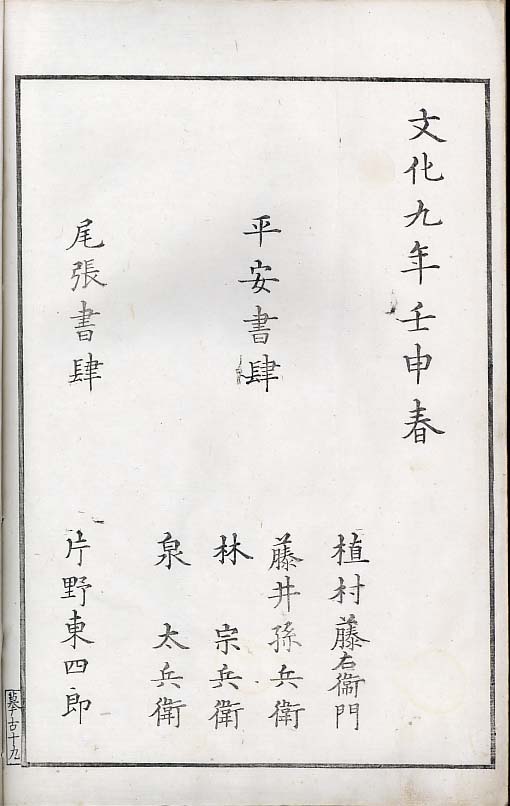 文化九年壬申春
平安書肆
植村藤右衞門
藤井孫兵衛
林宗兵衛
泉太兵衛
尾張書肆
片野東四郎
摹古十九